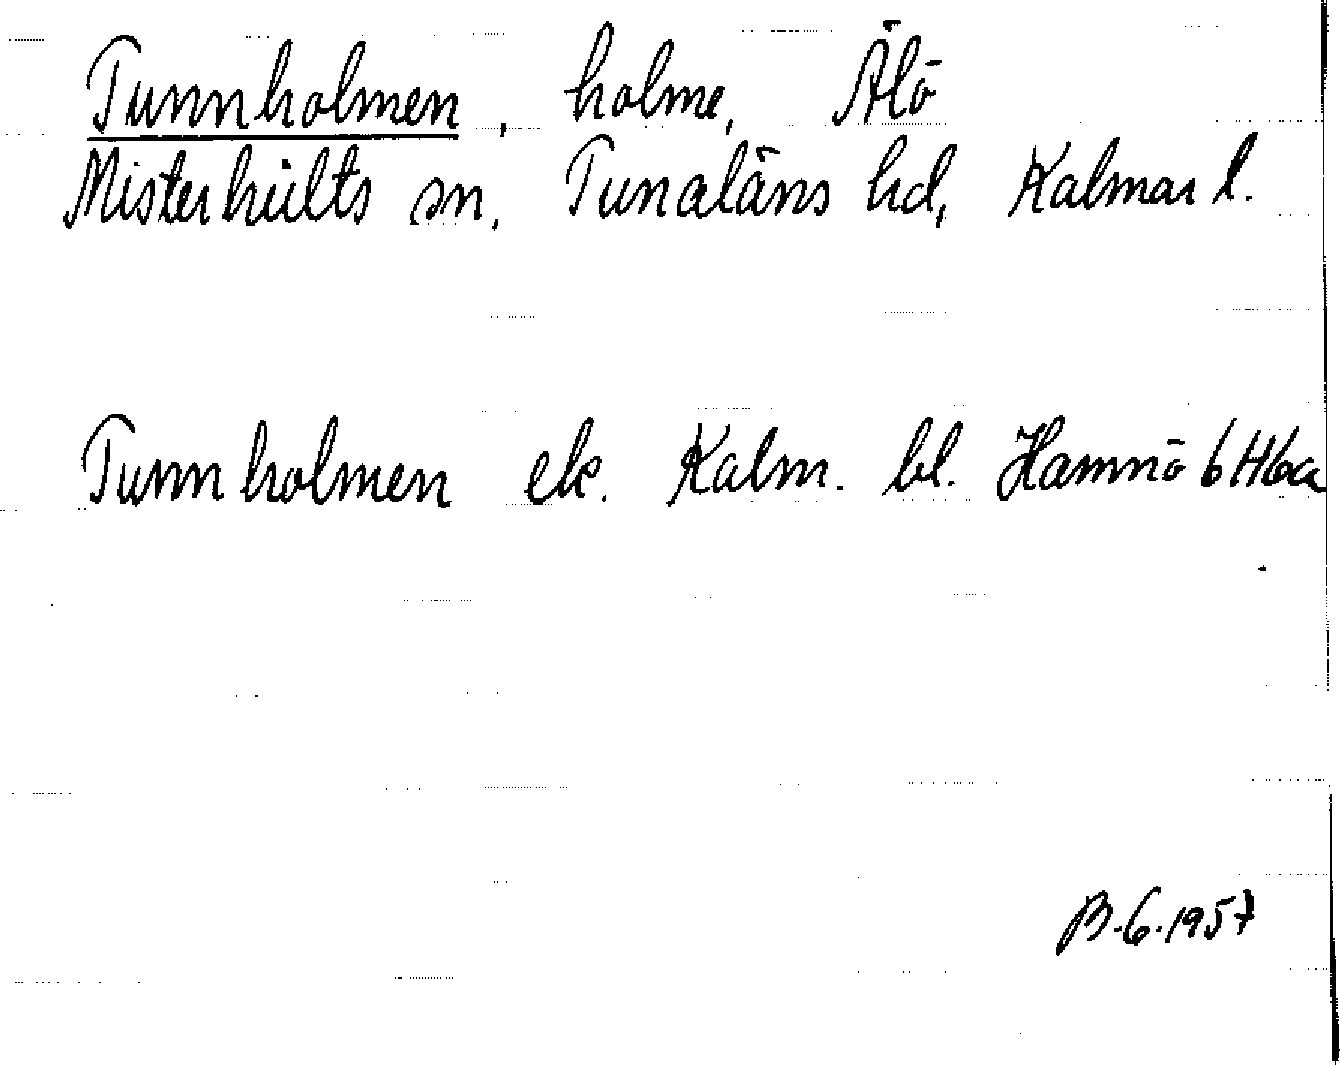 Tunnholmen, holme, Älö
Misterhults sn, Tunaläns hd, Kalmar l.
Tunnholmen ek. Kalm. bl. Hamnö 6H6a
B.G.1957